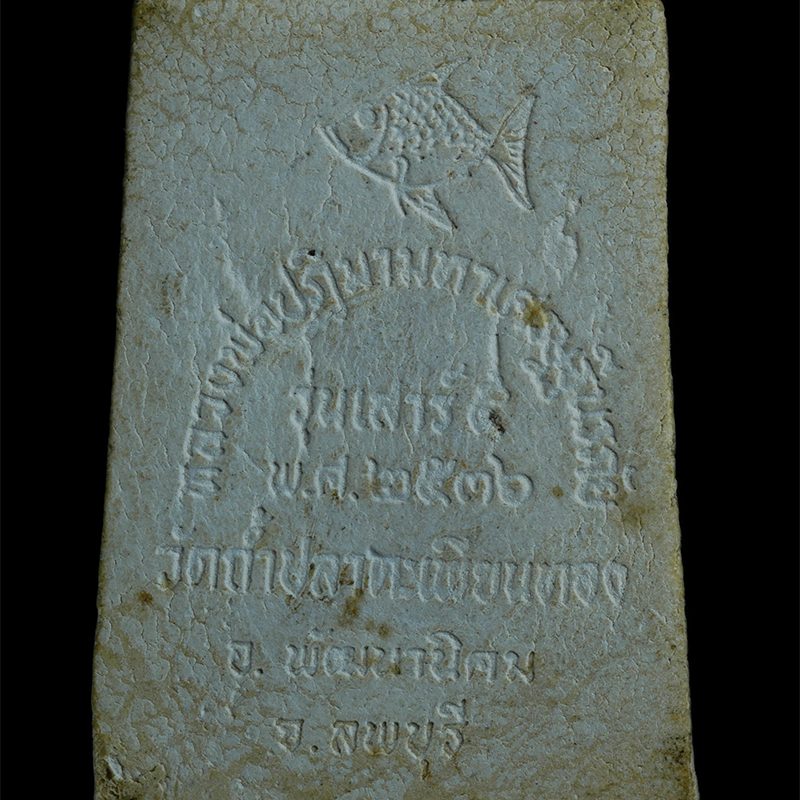 หลวงพ่อ
รุ่นเสาร์ ๕
พ.ศ. ๒๕๓๖
วัดถ้ำปลาตะเพียนทอง
อ. พัฒนานิคม
จ. ลพบุรี